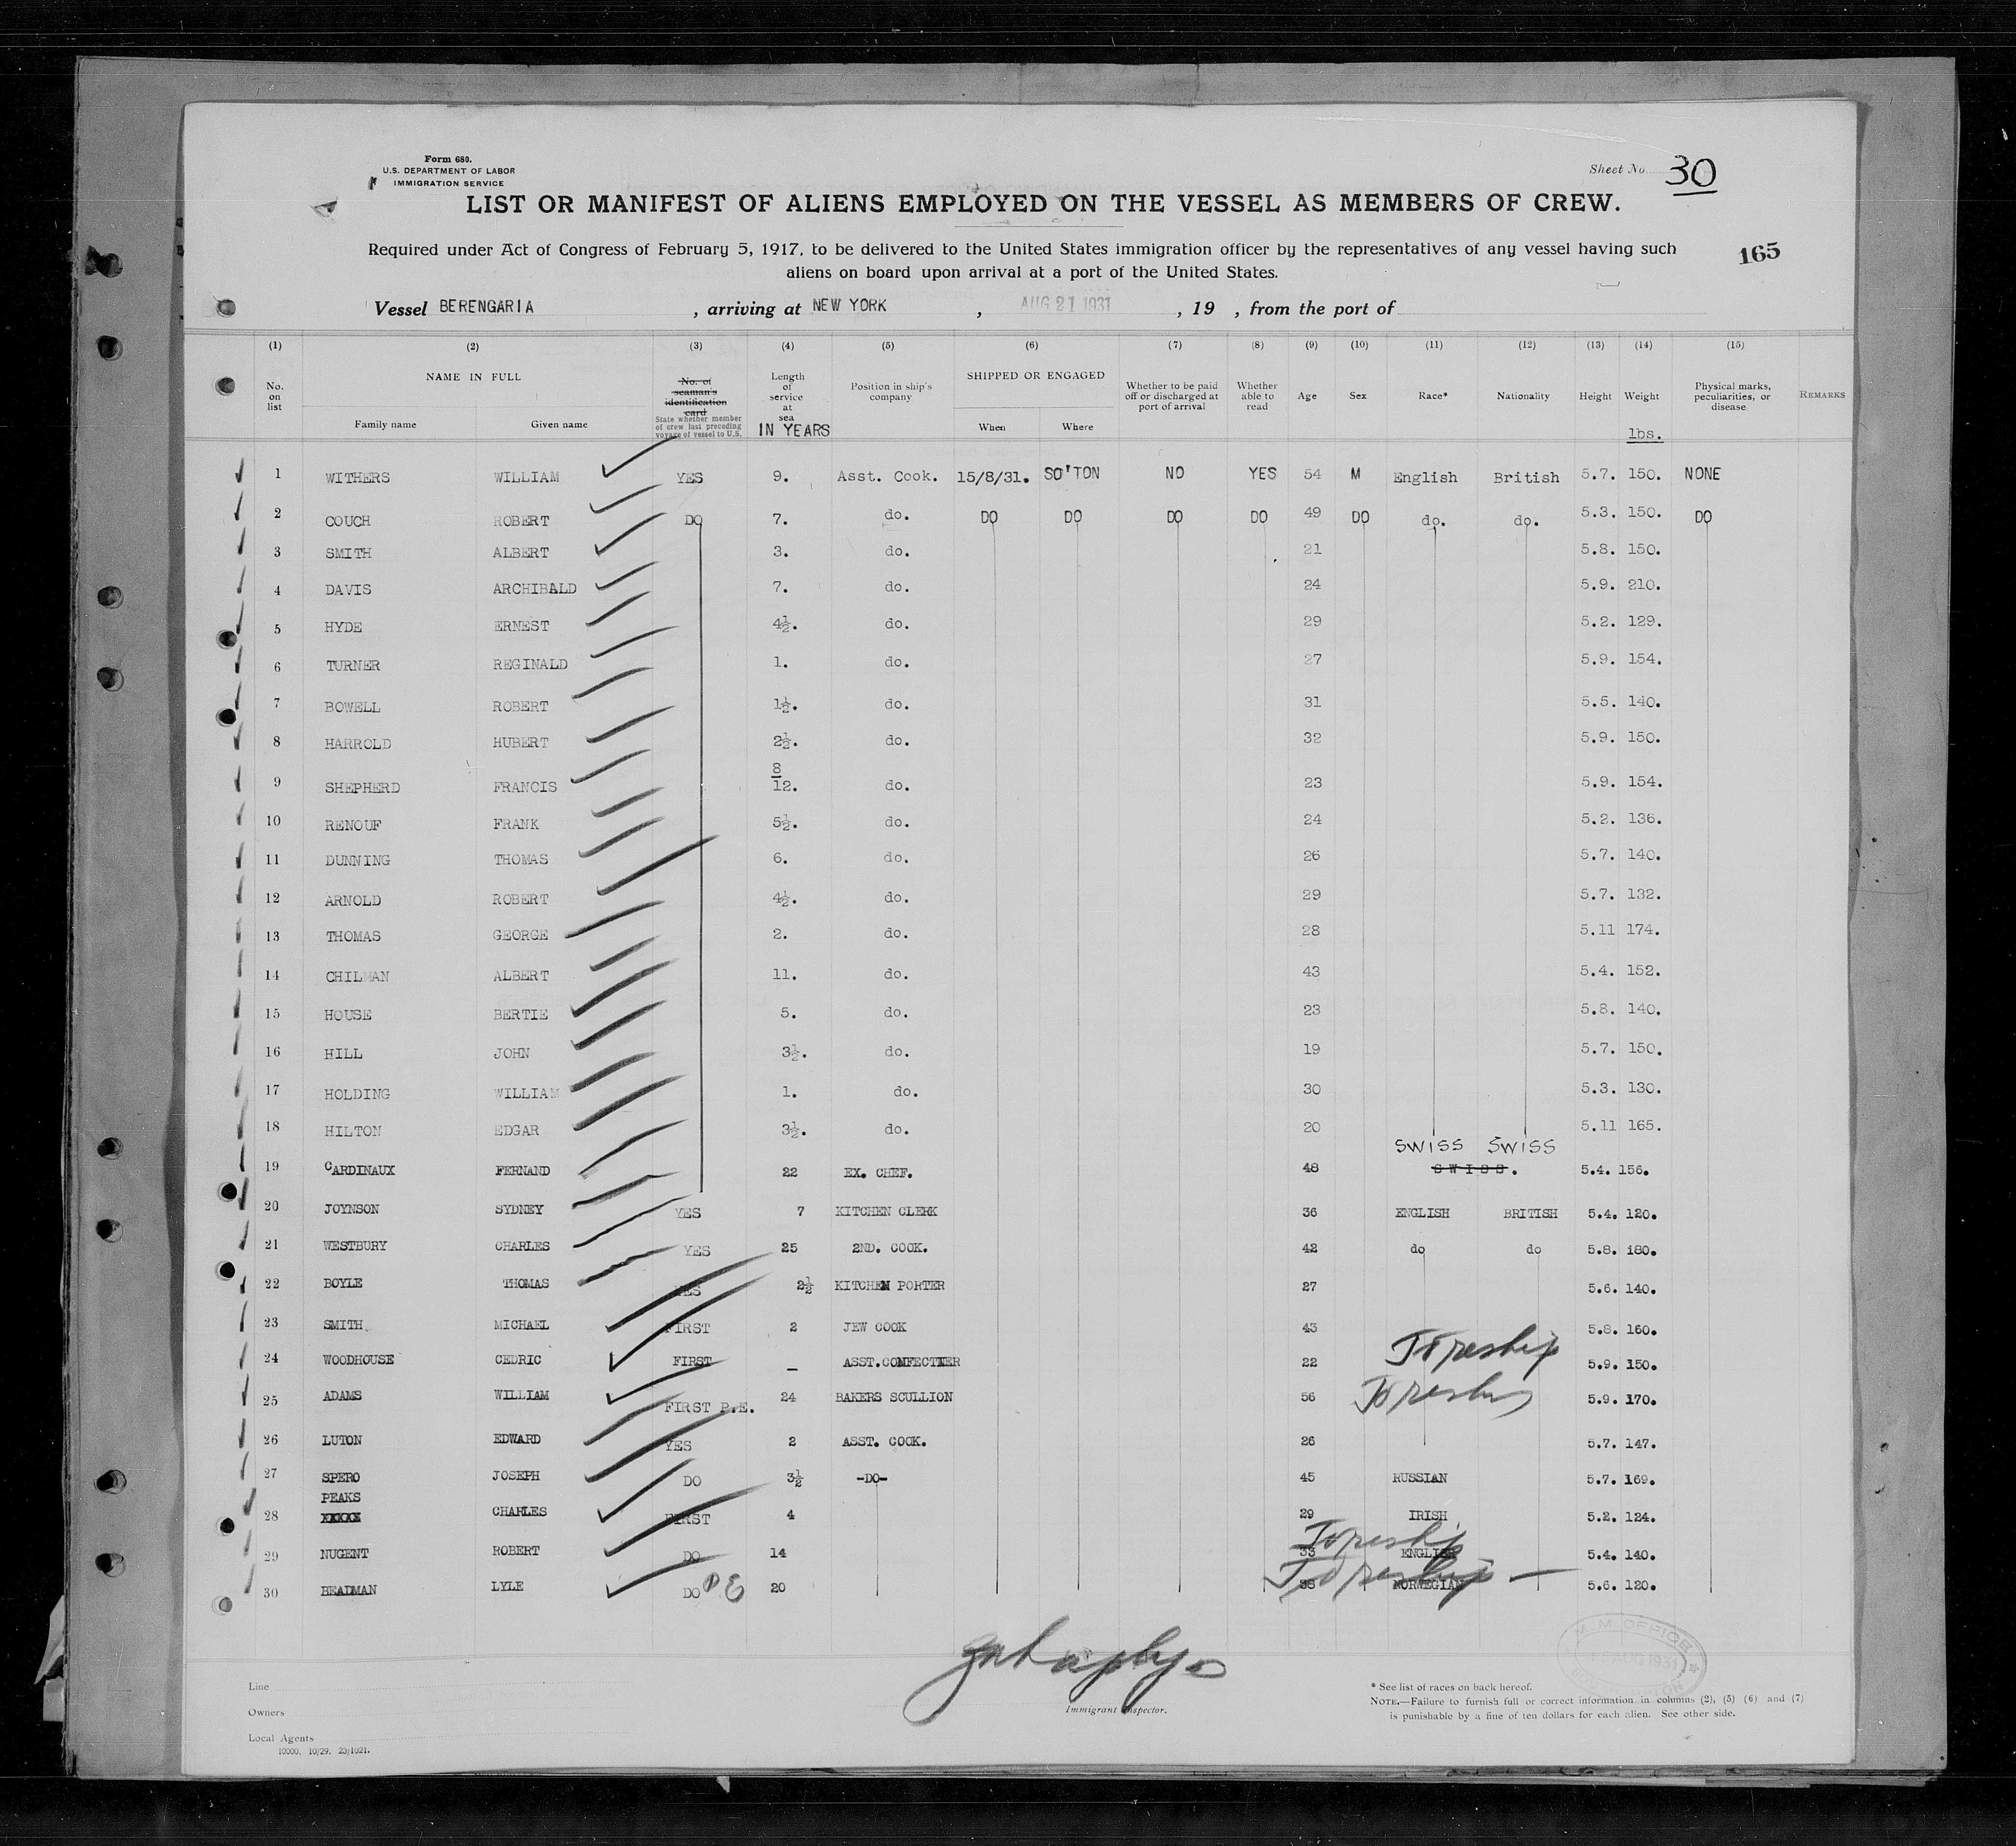 Form 680.
U.S. DEPARTMENT OF LABOR
IMMIGRATION SERVICE
Sheet No. 30
LIST OR MANIFEST OF ALIENS EMPLOYED ON THE VESSEL AS MEMBERS OF CREW.
Required under Act of Congress of February 5, 1917, to be delivered to the United States immigration officer by the representatives of any vessel having such
aliens on board upon arrival at a port of the United States.
165
Vessel BERENGARIA , arriving at NEW YORK , AUG 21 1931 , 19 , from the port of
(1) (2) (3) (4) (5) (6) (7) (8) (9) (10) (11) (12) (13) (14) (15)
No. on list
NAME IN FULL
Family name Given name
No. of seaman's identification card
State whether member of crew last preceding voyage of vessel to U.S.
Length of service at sea
IN YEARS
Position in ship's company
SHIPPED OR ENGAGED
When Where
Whether to be paid off or discharged at port of arrival
Whether able to read
Age Sex Race* Nationality Height Weight
lbs.
Physical marks, peculiarities, or disease
REMARKS
1 WITHERS WILLIAM YES 9. Asst. Cook. 15/8/31. SO'TON NO YES 54 M English British 5.7. 150. NONE
2 COUCH ROBERT DO 7. do. DO DO DO DO 49 DO do. do. 5.3. 150. DO
3 SMITH ALBERT 3. do. 21 5.8. 150.
4 DAVIS ARCHIBALD 7. do. 24 5.9. 210.
5 HYDE ERNEST 4½. do. 29 5.2. 129.
6 TURNER REGINALD 1. do. 27 5.9. 154.
7 BOWELL ROBERT 1½. do. 31 5.5. 140.
8 HARROLD HUBERT 2½. do. 32 5.9. 150.
9 SHEPHERD FRANCIS 8/12. do. 23 5.9. 154.
10 RENOUF FRANK 5½. do. 24 5.2. 136.
11 DUNNING THOMAS 6. do. 26 5.7. 140.
12 ARNOLD ROBERT 4½. do. 29 5.7. 132.
13 THOMAS GEORGE 2. do. 28 5.11 174.
14 CHILMAN ALBERT 11. do. 43 5.4. 152.
15 HOUSE BERTIE 5. do. 23 5.8. 140.
16 HILL JOHN 3½. do. 19 5.7. 150.
17 HOLDING WILLIAM 1. do. 30 5.3. 130.
18 HILTON EDGAR 3½. do. 20 5.11 165.
SWISS SWISS
19 CARDINAUX FERNAND 22 EX. CHEF. 48 SWISS. 5.4. 156.
20 JOYNSON SYDNEY YES 7 KITCHEN CLERK 36 ENGLISH BRITISH 5.4. 120.
21 WESTBURY CHARLES YES 25 2ND. COOK. 42 do do 5.8. 180.
22 BOYLE THOMAS YES 2½ KITCHEN PORTER 27 5.6. 140.
23 SMITH MICHAEL FIRST 2 JEW COOK 43 5.8. 160.
24 WOODHOUSE CEDRIC FIRST — ASST.CONFECTNER 22 5.9. 150.
25 ADAMS WILLIAM FIRST P.E. 24 BAKERS SCULLION 56 5.9. 170.
26 LUTON EDWARD YES 2 ASST. COOK. 26 5.7. 147.
27 SPERO JOSEPH DO 3½ -DO- 45 RUSSIAN 5.7. 169.
PEAKS
28 XXXXX CHARLES FIRST 4 29 IRISH 5.2. 124.
29 NUGENT ROBERT DO 14 33 ENGLISH 5.4. 140.
30 BEADMAN LYLE DO PE 20 38 NORWEGIAN 5.6. 120.
M.M. OFFICE
AUG 1931
Line
Owners
Local Agents
10000, 10/29. 23/1021.
Immigrant Inspector.
* See list of races on back hereof.
NOTE.—Failure to furnish full or correct information in columns (2), (5) (6) and (7)
is punishable by a fine of ten dollars for each alien. See other side.